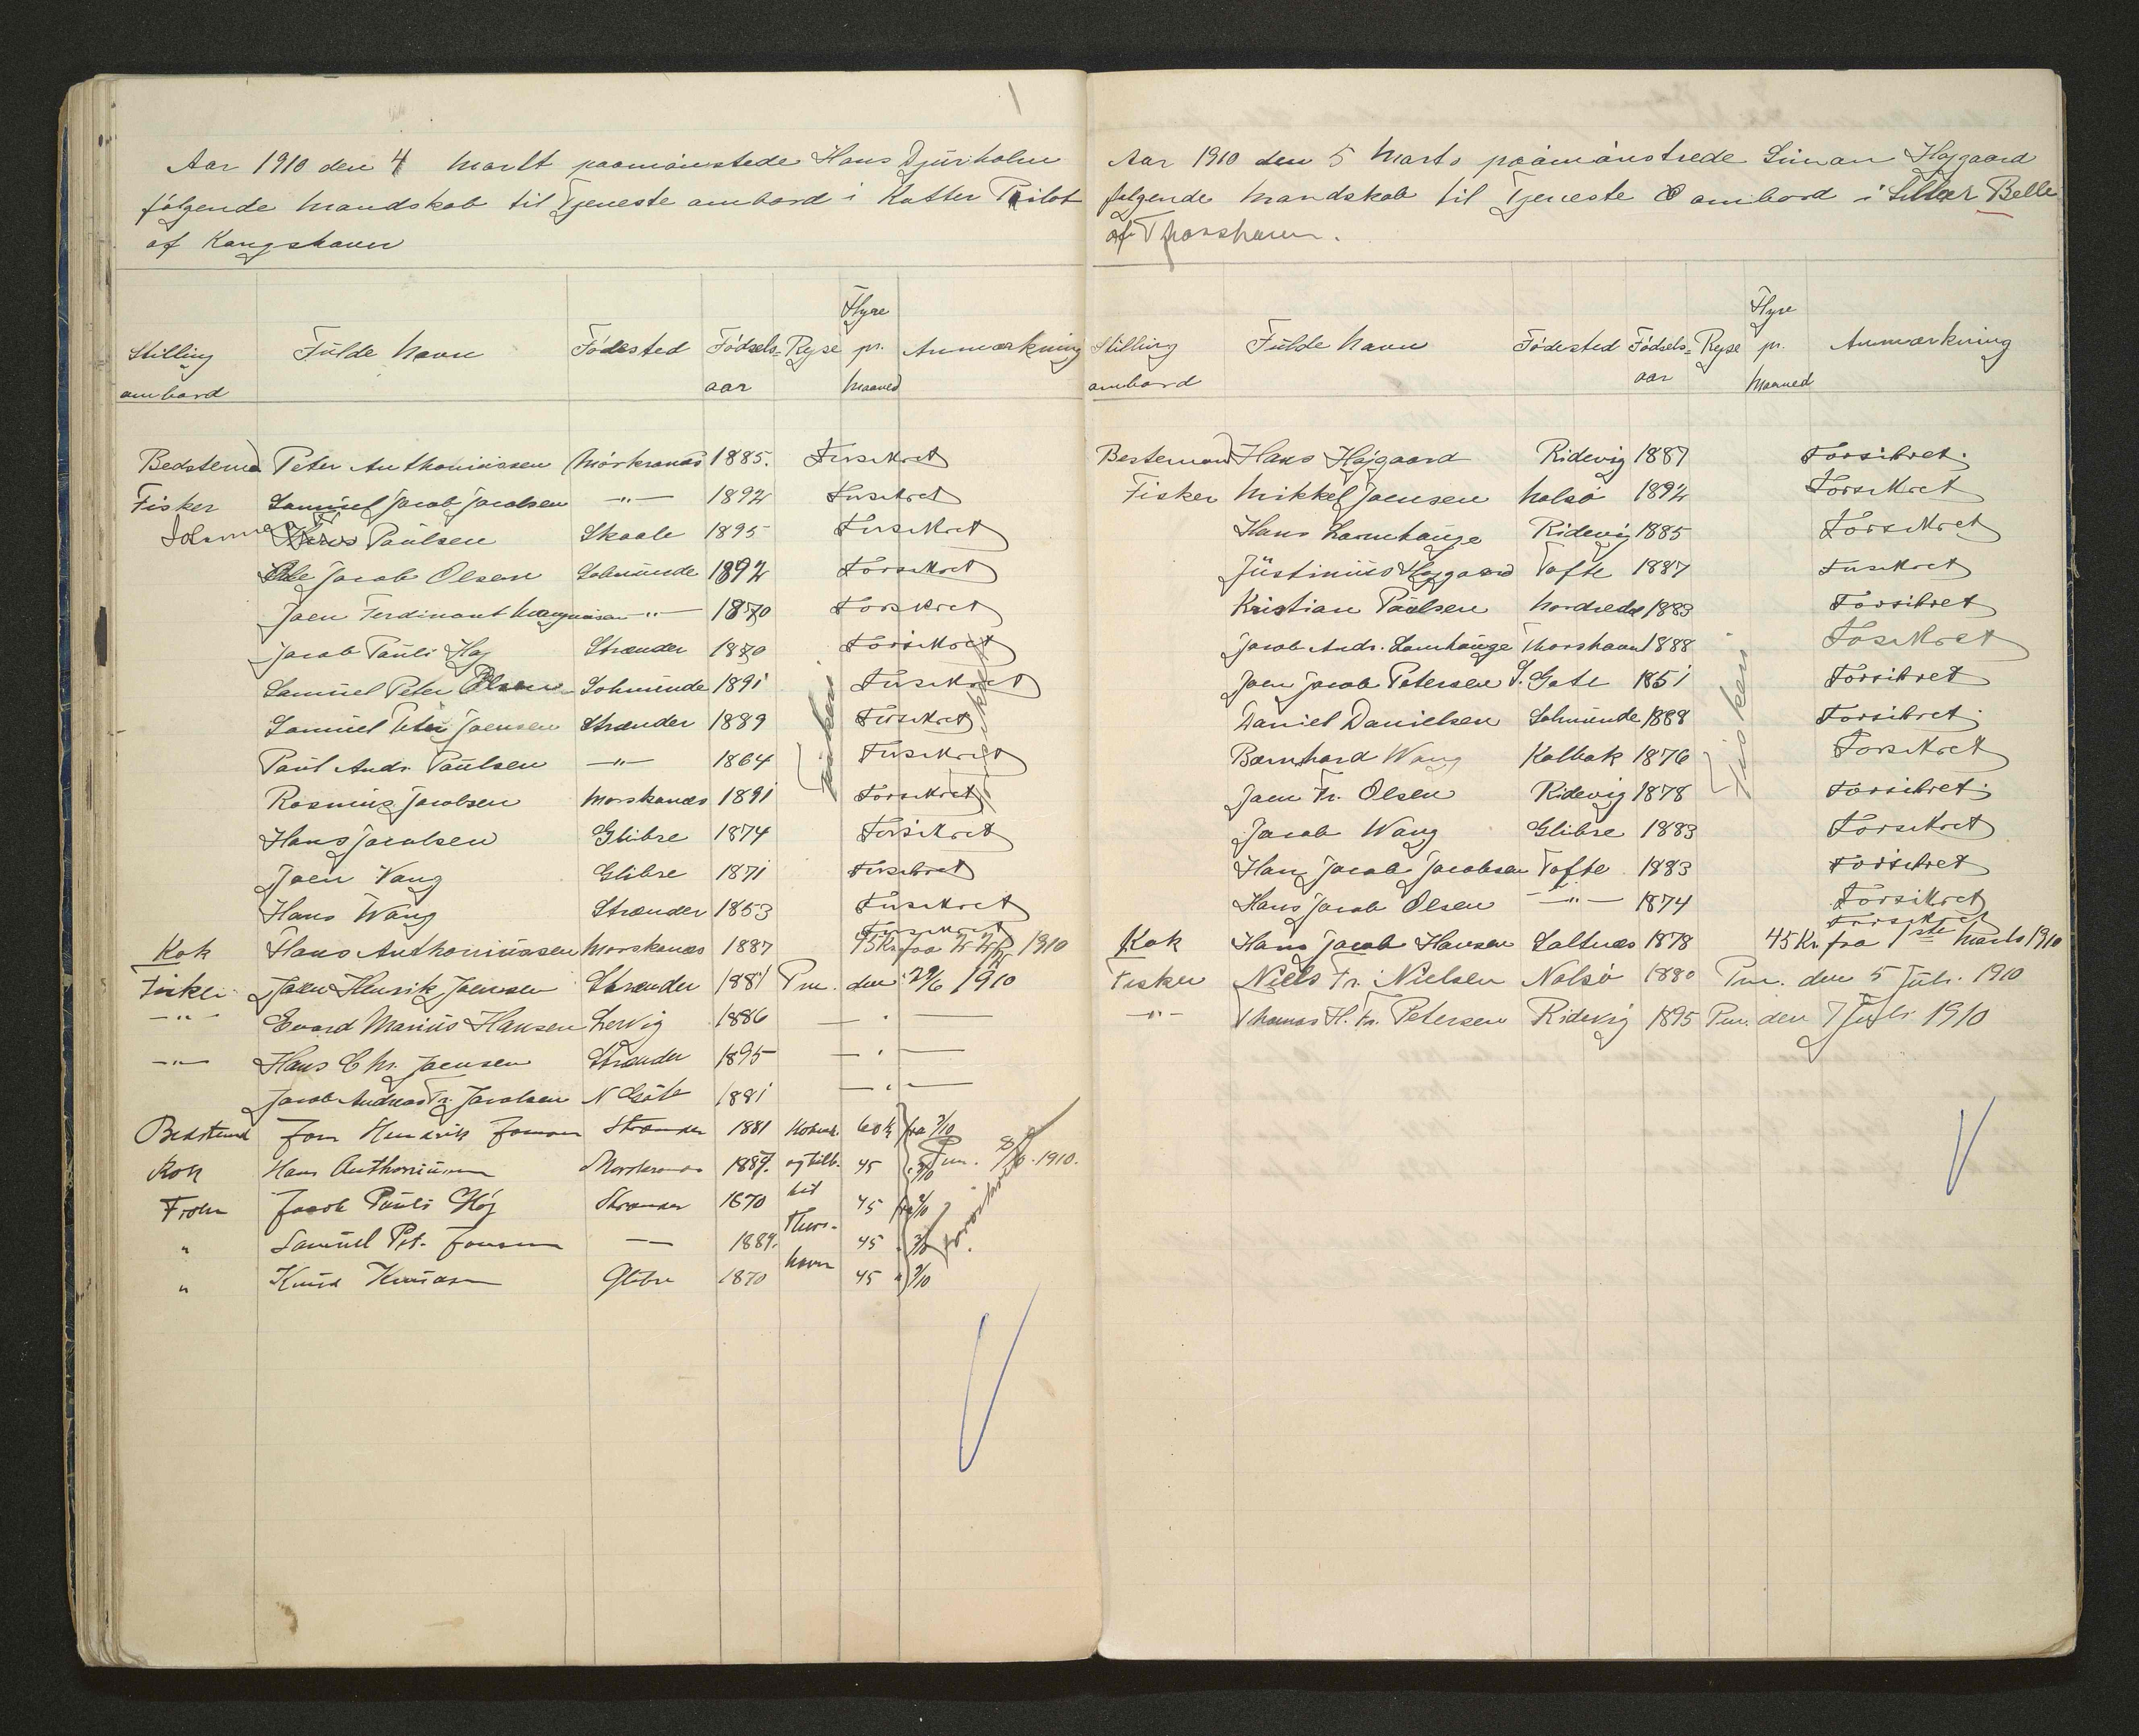 1
Aar 1910 den 4 Martt paamönstede Hans Djurholm
følgende Mandskab til Tjeneste ombord i Kutter Pilot
af Kongshavn
Stilling ombord Fulde Navn Födested Födsels=aar Rejse Hyre pr. Maaned Anmærkning
Bedstemd Peter Anthoniussen Mörkranæs 1885. Forsikret
Fisker Samuel Jacob Jacobsen —"— 1892 Forsikret
Paulsen Skaale 1895 Forsikret
Ole Jacob Olsen Solmunde 1892 Forsikret
Joen Ferdinant Magnusen —"— 1870 Forsikret
Jacob Pauli Høj Strænder 1870 Forsikret
Samuel Peter Olsen Solmunde 1891 Forsikret
Samuel Peter Joensen Strænder 1889 Forsikret
Paul Andr. Paulsen —"— 1864 Fiskeri Forsikret
Rasmus Jacobsen Morskanæs 1891 Forsikret
Hans Jacobsen Glibre 1874 Forsikret
Joen Vang Glibre 1871 Forsikret
Hans Wang Strænder 1853 Forsikret
Forsikret
Kok Hans Anthoniussen Morskanæs 1887 1910
Fisker Joen Henrik Joensen Strænder 1881 Pm. den 29/6 1910
—"— Evard Marius Hansen Lervig 1886 — " —
—"— Hans Chr. Joensen Strænder 1895 — " —
Jacob Andreas Fr. Jacobsen N Göte 1881 — " —
Bedstemd Joen Hendrik Joensen Strænder 1881 60 fra 3/10
Kok Hans Anthoniussen 1887. og tilb. 45 " 3/10 Pm. 1910.
Fisker Jacob Pauli Høj Strænder 1870 til 45 fra 3/10
" Samuel Pet. Joensen —— 1889. Thors- 45 " 3/10
" Knud Knudsen Glibre 1870 havn 45 " 3/10
Aar 1910 den 5 Marts paamönstrede Simon Højgaard
følgende Mandskab til Tjeneste ombord i Sletter Belle
af Thorshavn.
Stilling ombord Fulde Navn Födested Födsels=aar Rejse Hyre pr. Maaned Anmærkning
Bestemand Hans Højgaard Ridevig 1887 Forsikret.
Fisker Mikkel Joensen Nolsö 1892 Forsikret
Hans Lamhauge Ridevig 1885 Forsikret
Justinius Højgaard Tofte 1887 Forsikret
Kristian Paulsen Nordredal 1883 Forsikret
Jacob Andr. Lamhauge Thorshavn 1888 Forsikret
Joen Jacob Petersen S. Gøte 1851 Forsikret
Daniel Danielsen Solmunde 1888 Forsikret.
Bærnhard Wang Kolbak 1876 Fiskeri Forsikret
Joen Fr. Olsen Ridevig 1878 Forsikret.
Jacob Wang Glibre 1883 Forsikret
Hans Jacob Jacobsen Tofte 1883 Forsikret
Hans Jacob Olsen —"— 1874 Forsikret
Forsikret
Kok Hans Jacob Hansen Saltnæs 1878 45 Kr. fra 1ste Marts 1910
Fisker Niels Fr. Nielsen Nolsö 1880 Pm. den 5 Juli. 1910
—"— Thomas H. Fr. Petersen Ridevig 1895 Pm. den 7 Juli 1910